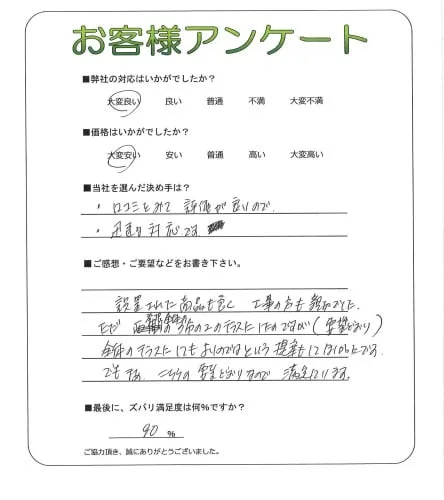 お客様アンケート
■弊社の対応はいかがでしたか?
大変良い 良い 普通 不満 大変不満
■価格はいかがでしたか?
大変安い 安い 普通 高い 大変高い
■当社を選んだ決め手は?
・口コミをみて 評価が良いので
・迅速な対応です
■ご感想・ご要望などをお書き下さい。
設置された商品も良く 工事の方も親切でした
ただ の2のテラスにしたのですが(要望どおり)
全体のテラスにしてもよいのではという提案もしてほしかったです.
でもまあ、こちらの要望どおりなので 満足しています.
■最後に、ズバリ満足度は何%ですか?
90 %
ご協力頂き、誠にありがとうございました。